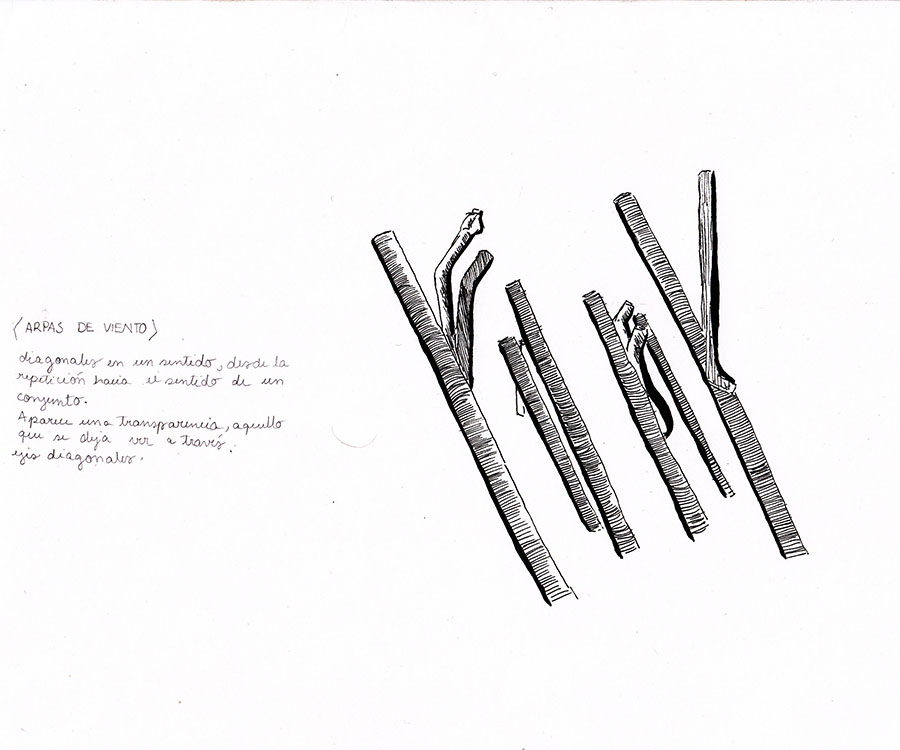 (ARPAS DE VIENTO)
diagonales en un sentido, desde la
repetición hacia el sentido de un
conjunto.
Aparece una transparencia, aquello
que se deja ver a través.
ejes diagonales.